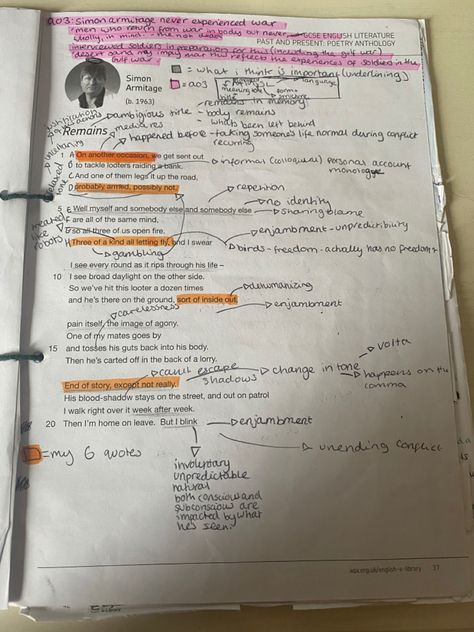 ao3: Simon armitage never experienced war
"men who return from war in body but never
wholly, in mind" "are not heroes"
GCSE ENGLISH LITERATURE
PAST AND PRESENT: POETRY ANTHOLOGY
interviewed soldiers in preparation for this (including the gulf war)
desert sand may imply that this reflects the experiences of soldiers in the
gulf war
= what i think is important (underlining)
= ao3
language
form +
structure
Simon
Armitage
(b. 1963)
ambigious title - body remains
- remains in memory
- whats been left behind
media res
happened before - taking someone's life normal during conflict
recurring
Remains
1 On another occasion, we got sent out
to tackle looters raiding a bank.
And one of them legs it up the road,
probably armed, possibly not.
informal (colloquial) personas account
monologue
repetition
5 Well myself and somebody else and somebody else
are all of the same mind,
so all three of us open fire.
Three of a kind all letting fly, and I swear
no identity
sharing blame
enjambment - unpredictibility
birds - freedom - actually has no freedom
gambling
I see every round as it rips through his life –
10 I see broad daylight on the other side.
So we've hit this looter a dozen times
and he's there on the ground, sort of inside out,
dehumanizing
enjambment
carelessness
pain itself, the image of agony.
One of my mates goes by
15 and tosses his guts back into his body.
Then he's carted off in the back of a lorry.
cant escape
shadows
change in tone
volta
happens on the
comma
End of story, except not really.
His blood-shadow stays on the street, and out on patrol
I walk right over it week after week.
20 Then I'm home on leave. But I blink
enjambment
unending conflict
= my 6 quotes
involuntary
unpredictable
natural
both conscious and
subconscious are
impacted by what
he's seen.
aqa.org.uk/english-e-library
37